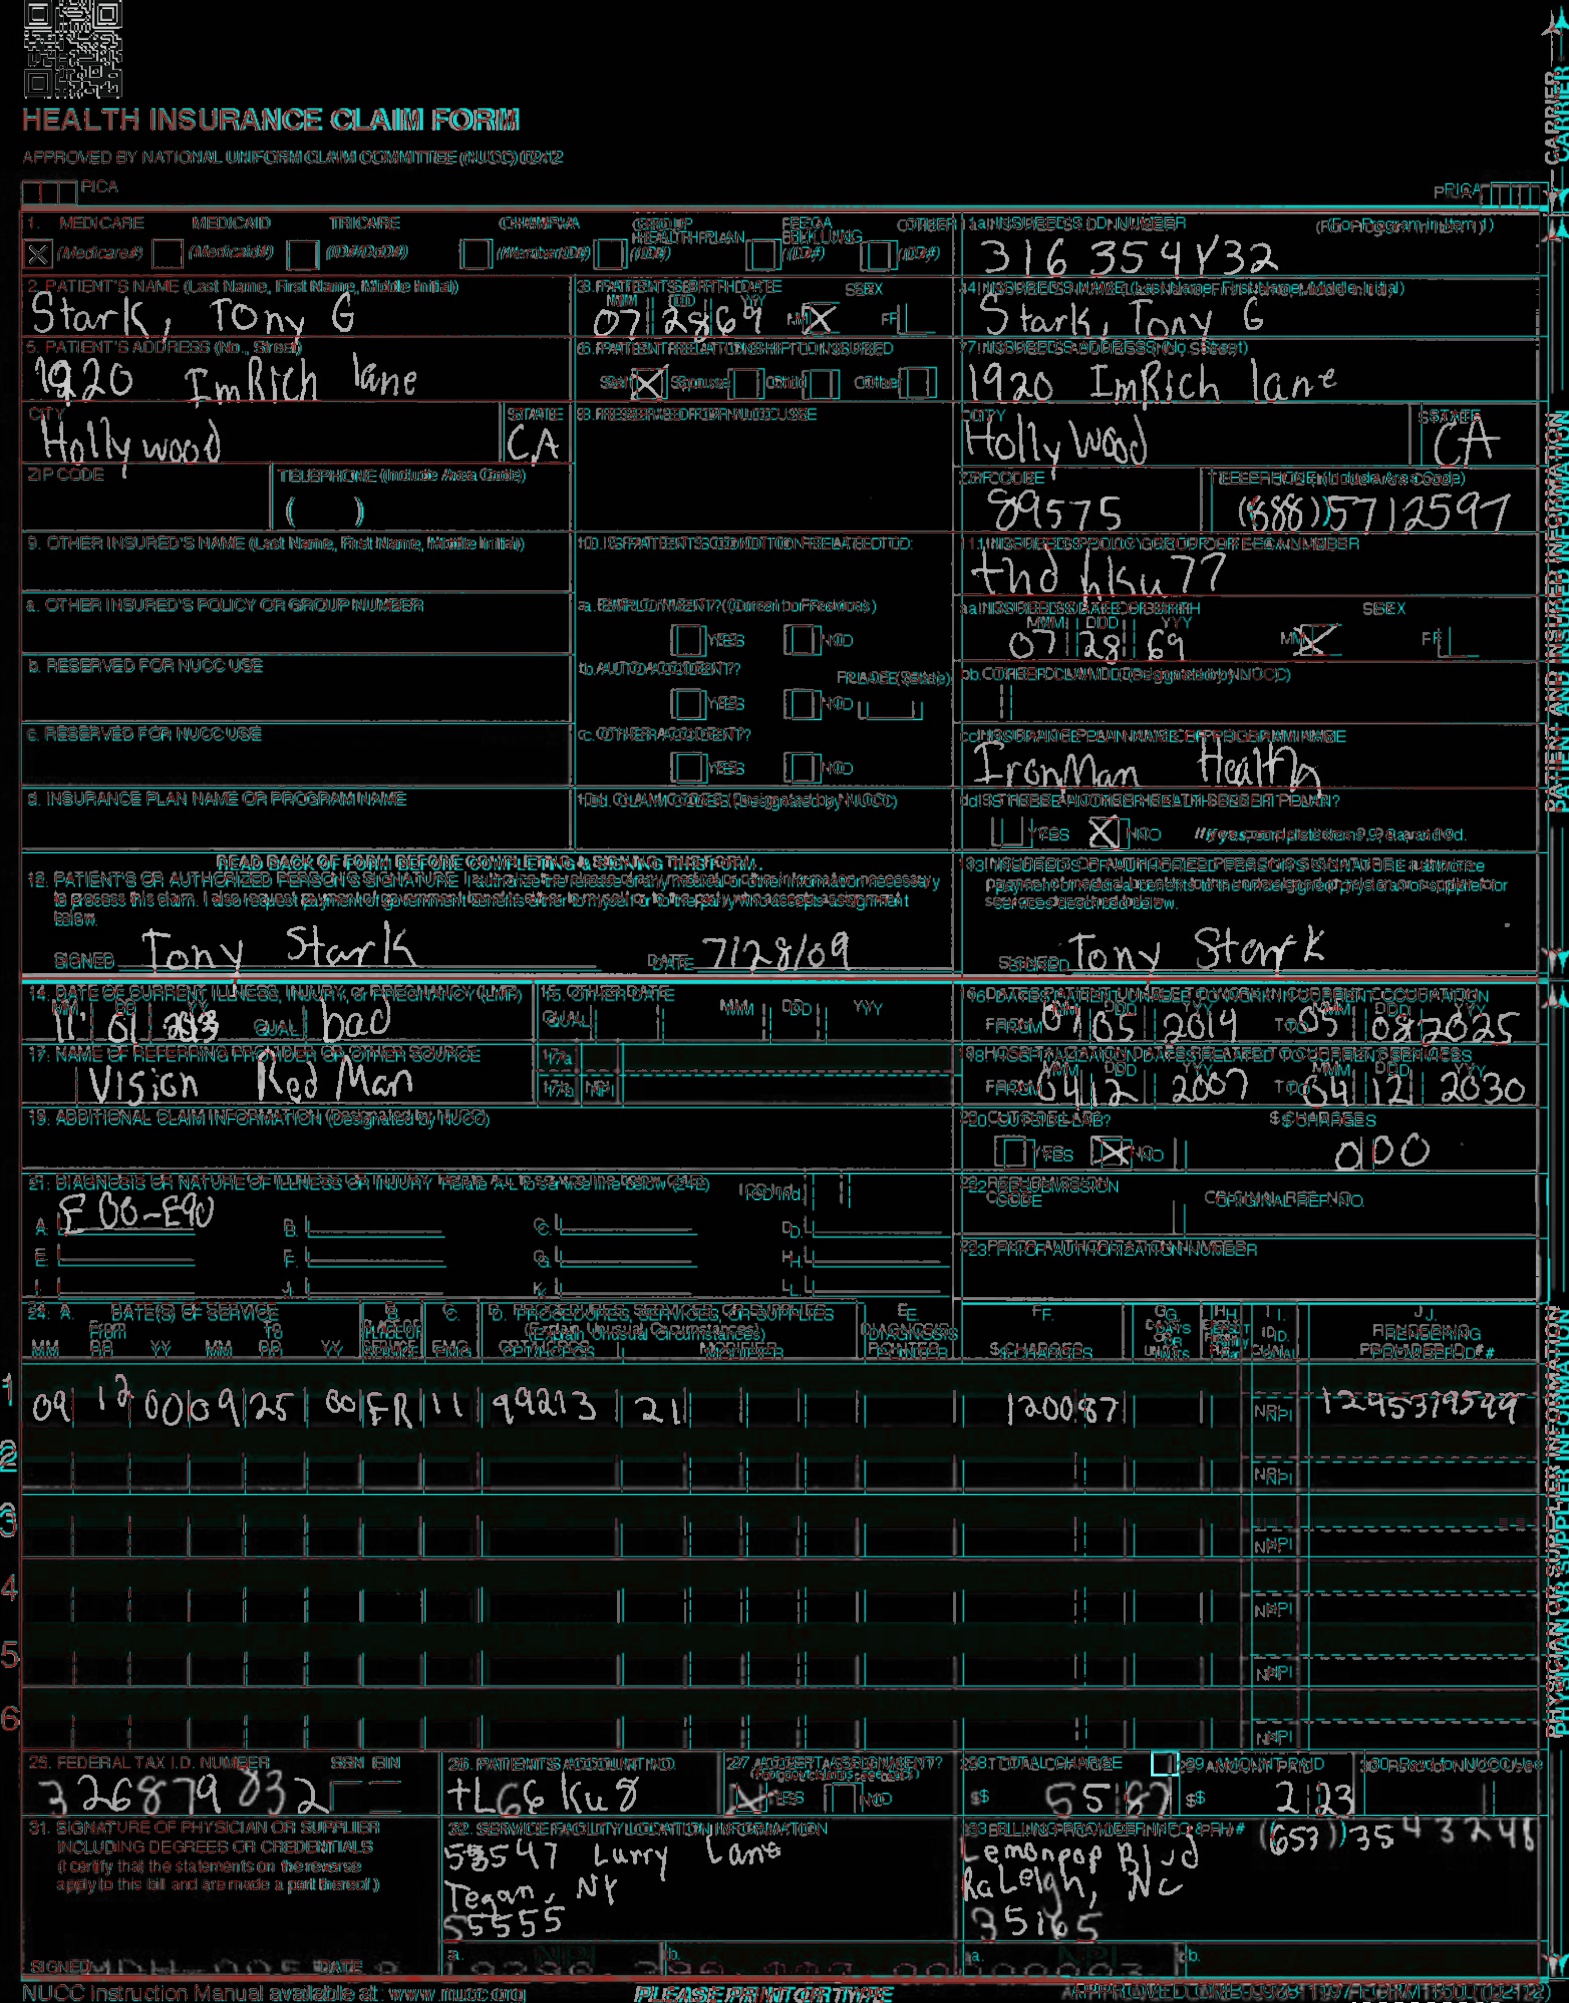 HEALTH INSURANCE CLAIM FORM
APPROVED BY NATIONAL UNIFORM CLAIM COMMITTEE (NUCC) 02/12
PICA
PICA
CARRIER
1. MEDICARE MEDICAID TRICARE CHAMPVA GROUP HEALTH PLAN FECA BLK LUNG OTHER
(Medicare#) (Medicaid#) (ID#/DoD#) (Member ID#) (ID#) (ID#) (ID#)
1a. INSURED'S I.D. NUMBER (For Program in Item 1)
316 354Y32
2. PATIENT'S NAME (Last Name, First Name, Middle Initial)
Stark, Tony G
3. PATIENT'S BIRTH DATE SEX
MM DD YY
07 28 69 M F
4. INSURED'S NAME (Last Name, First Name, Middle Initial)
Stark, Tony G
5. PATIENT'S ADDRESS (No., Street)
1920 ImRich lane
6. PATIENT RELATIONSHIP TO INSURED
Self Spouse Child Other
7. INSURED'S ADDRESS (No., Street)
1920 ImRich lane
CITY STATE
Hollywood CA
8. RESERVED FOR NUCC USE
CITY STATE
Hollywood CA
ZIP CODE TELEPHONE (Include Area Code)
( )
ZIP CODE TELEPHONE (Include Area Code)
89575 (888) 5712597
9. OTHER INSURED'S NAME (Last Name, First Name, Middle Initial)
10. IS PATIENT'S CONDITION RELATED TO:
11. INSURED'S POLICY GROUP OR FECA NUMBER
thd hku77
a. OTHER INSURED'S POLICY OR GROUP NUMBER
a. EMPLOYMENT? (Current or Previous)
YES NO
a. INSURED'S DATE OF BIRTH SEX
MM DD YY
07 28 69 M F
b. RESERVED FOR NUCC USE
b. AUTO ACCIDENT? PLACE (State)
YES NO
b. OTHER CLAIM ID (Designated by NUCC)
c. RESERVED FOR NUCC USE
c. OTHER ACCIDENT?
YES NO
c. INSURANCE PLAN NAME OR PROGRAM NAME
IronMan Health
d. INSURANCE PLAN NAME OR PROGRAM NAME
10d. CLAIM CODES (Designated by NUCC)
d. IS THERE ANOTHER HEALTH BENEFIT PLAN?
YES NO If yes, complete items 9, 9a, and 9d.
READ BACK OF FORM BEFORE COMPLETING & SIGNING THIS FORM.
12. PATIENT'S OR AUTHORIZED PERSON'S SIGNATURE I authorize the release of any medical or other information necessary
to process this claim. I also request payment of government benefits either to myself or to the party who accepts assignment
below.
SIGNED Tony Stark DATE 7/28/09
13. INSURED'S OR AUTHORIZED PERSON'S SIGNATURE I authorize
payment of medical benefits to the undersigned physician or supplier for
services described below.
SIGNED Tony Stark
PATIENT AND INSURED INFORMATION
14. DATE OF CURRENT ILLNESS, INJURY, or PREGNANCY (LMP)
MM DD YY
11 01 QUAL. bad
15. OTHER DATE
QUAL. MM DD YY
16. DATES PATIENT UNABLE TO WORK IN CURRENT OCCUPATION
MM DD YY MM DD YY
FROM 05 2019 TO 05 08 2025
17. NAME OF REFERRING PROVIDER OR OTHER SOURCE
Vision Red Man
17a.
17b. NPI
18. HOSPITALIZATION DATES RELATED TO CURRENT SERVICES
MM DD YY MM DD YY
FROM 04 12 2007 TO 04 12 2030
19. ADDITIONAL CLAIM INFORMATION (Designated by NUCC)
20. OUTSIDE LAB? $ CHARGES
YES NO 000
21. DIAGNOSIS OR NATURE OF ILLNESS OR INJURY Relate A-L to service line below (24E) ICD Ind.
A. E00-E90 B. C. D.
E. F. G. H.
I. J. K. L.
22. RESUBMISSION
CODE ORIGINAL REF. NO.
23. PRIOR AUTHORIZATION NUMBER
24. A. DATE(S) OF SERVICE B. C. D. PROCEDURES, SERVICES, OR SUPPLIES E. F. G. H. I. J.
From To PLACE OF (Explain Unusual Circumstances) DIAGNOSIS DAYS OR ID. RENDERING
MM DD YY MM DD YY SERVICE EMG CPT/HCPCS MODIFIER POINTER $ CHARGES UNITS QUAL. PROVIDER ID. #
1 09 12 00 09 25 00 ER 11 99213 21 120087 NPI 1295379599
2 NPI
3 NPI
4 NPI
5 NPI
6 NPI
PHYSICIAN OR SUPPLIER INFORMATION
25. FEDERAL TAX I.D. NUMBER SSN EIN
326879832
26. PATIENT'S ACCOUNT NO.
tLG6Ku8
27. ACCEPT ASSIGNMENT?
(For govt. claims, see back)
YES NO
28. TOTAL CHARGE
$ 55 87
29. AMOUNT PAID
$ 2 23
30. Rsvd for NUCC Use
31. SIGNATURE OF PHYSICIAN OR SUPPLIER
INCLUDING DEGREES OR CREDENTIALS
(I certify that the statements on the reverse
apply to this bill and are made a part thereof.)
SIGNED DATE
32. SERVICE FACILITY LOCATION INFORMATION
Lurry Lane
Tegan, NY
55555
a. b.
33. BILLING PROVIDER INFO & PH # (653) 3543248
Lemonpop Blvd
Raleigh, NC
35165
a. b.
NUCC Instruction Manual available at: www.nucc.org
PLEASE PRINT OR TYPE